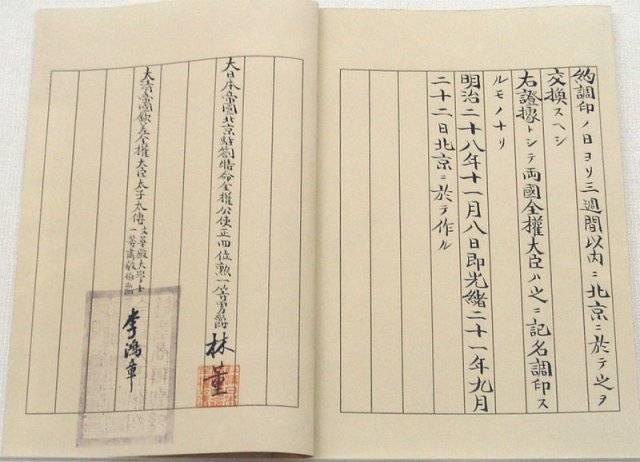 約調印ノ日ヨリ三週間以内ニ北京ニ於テ之ヲ
交換スヘシ
右證據トシテ両國全權大臣ハ之ニ記名調印ス
ルモノナリ
明治二十八年十一月八日即光緒二十一年九月
二十二日北京ニ於テ作ル
大日本帝國北京駐箚特命全權公使正四位勲一等男爵 林董
大清帝國欽差全權大臣太子太傅文華殿大學士一等肅毅伯爵 李鴻章